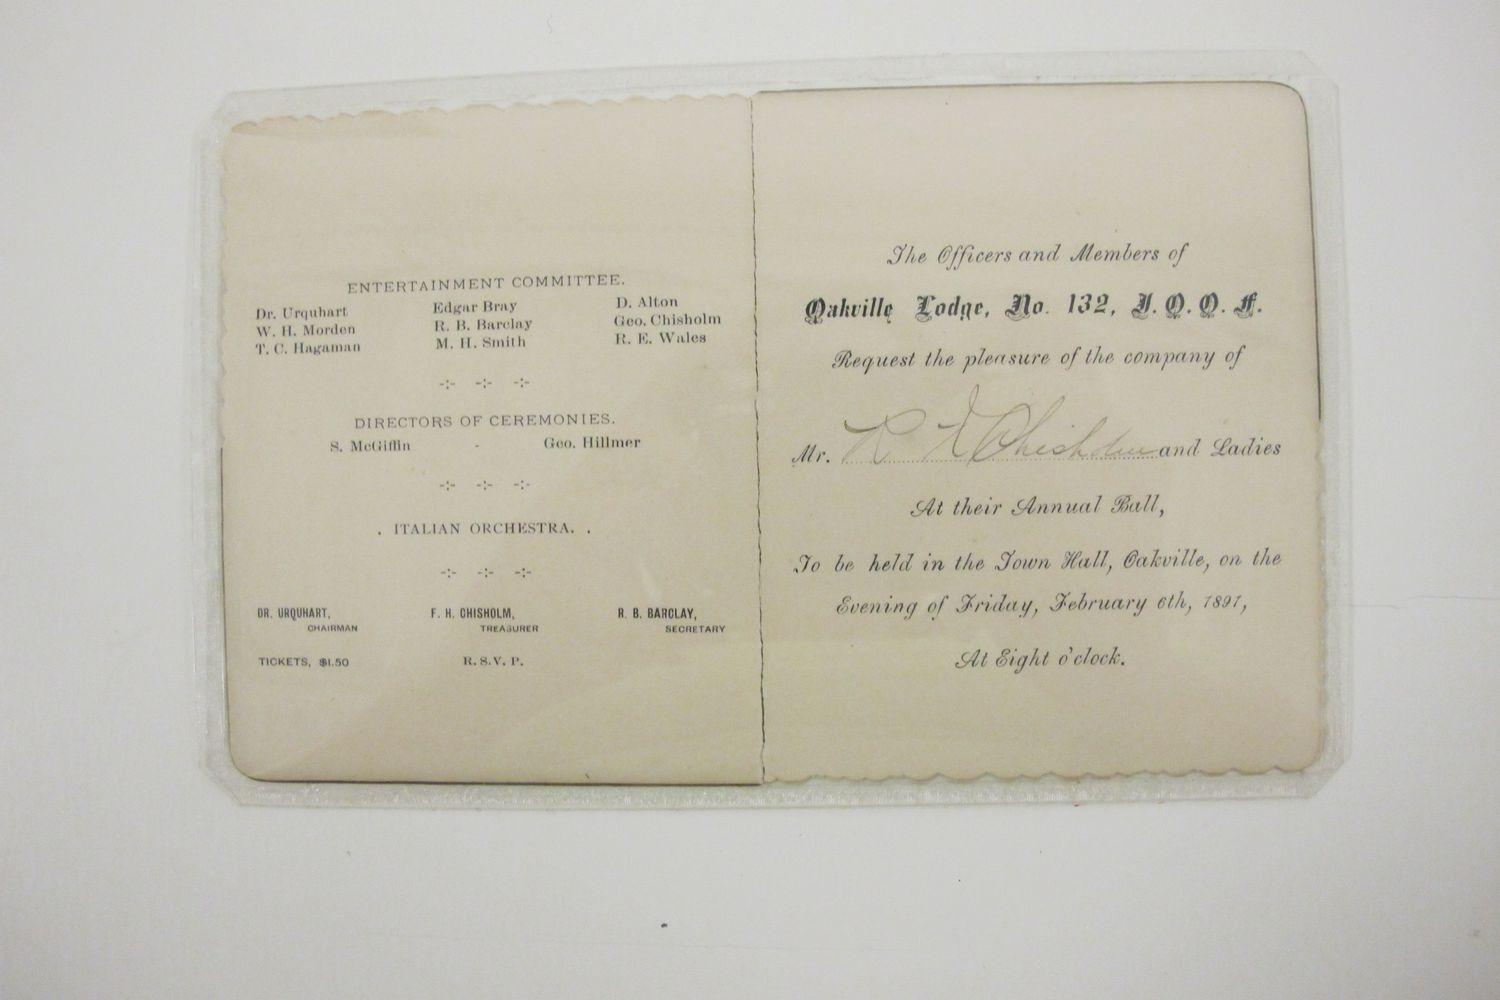 ENTERTAINMENT COMMITTEE.
Dr. Urquhart Edgar Bray D. Alton
W. H. Morden R. B. Barclay Geo. Chisholm
T. C. Hagaman M. H. Smith R. E. Wales
-:- -:- -:-
DIRECTORS OF CEREMONIES.
S. McGiffin - Geo. Hillmer
-:- -:- -:-
. ITALIAN ORCHESTRA. .
-:- -:- -:-
DR. URQUHART, F. H. CHISHOLM, R. B. BARCLAY,
CHAIRMAN TREASURER SECRETARY
TICKETS, $1.50 R. S. V. P.
The Officers and Members of
Oakville Lodge, No. 132, I. O. O. F.
Request the pleasure of the company of
Mr. R Chisholm and Ladies
At their Annual Ball,
To be held in the Town Hall, Oakville, on the
Evening of Friday, February 6th, 1891,
At Eight o'clock.